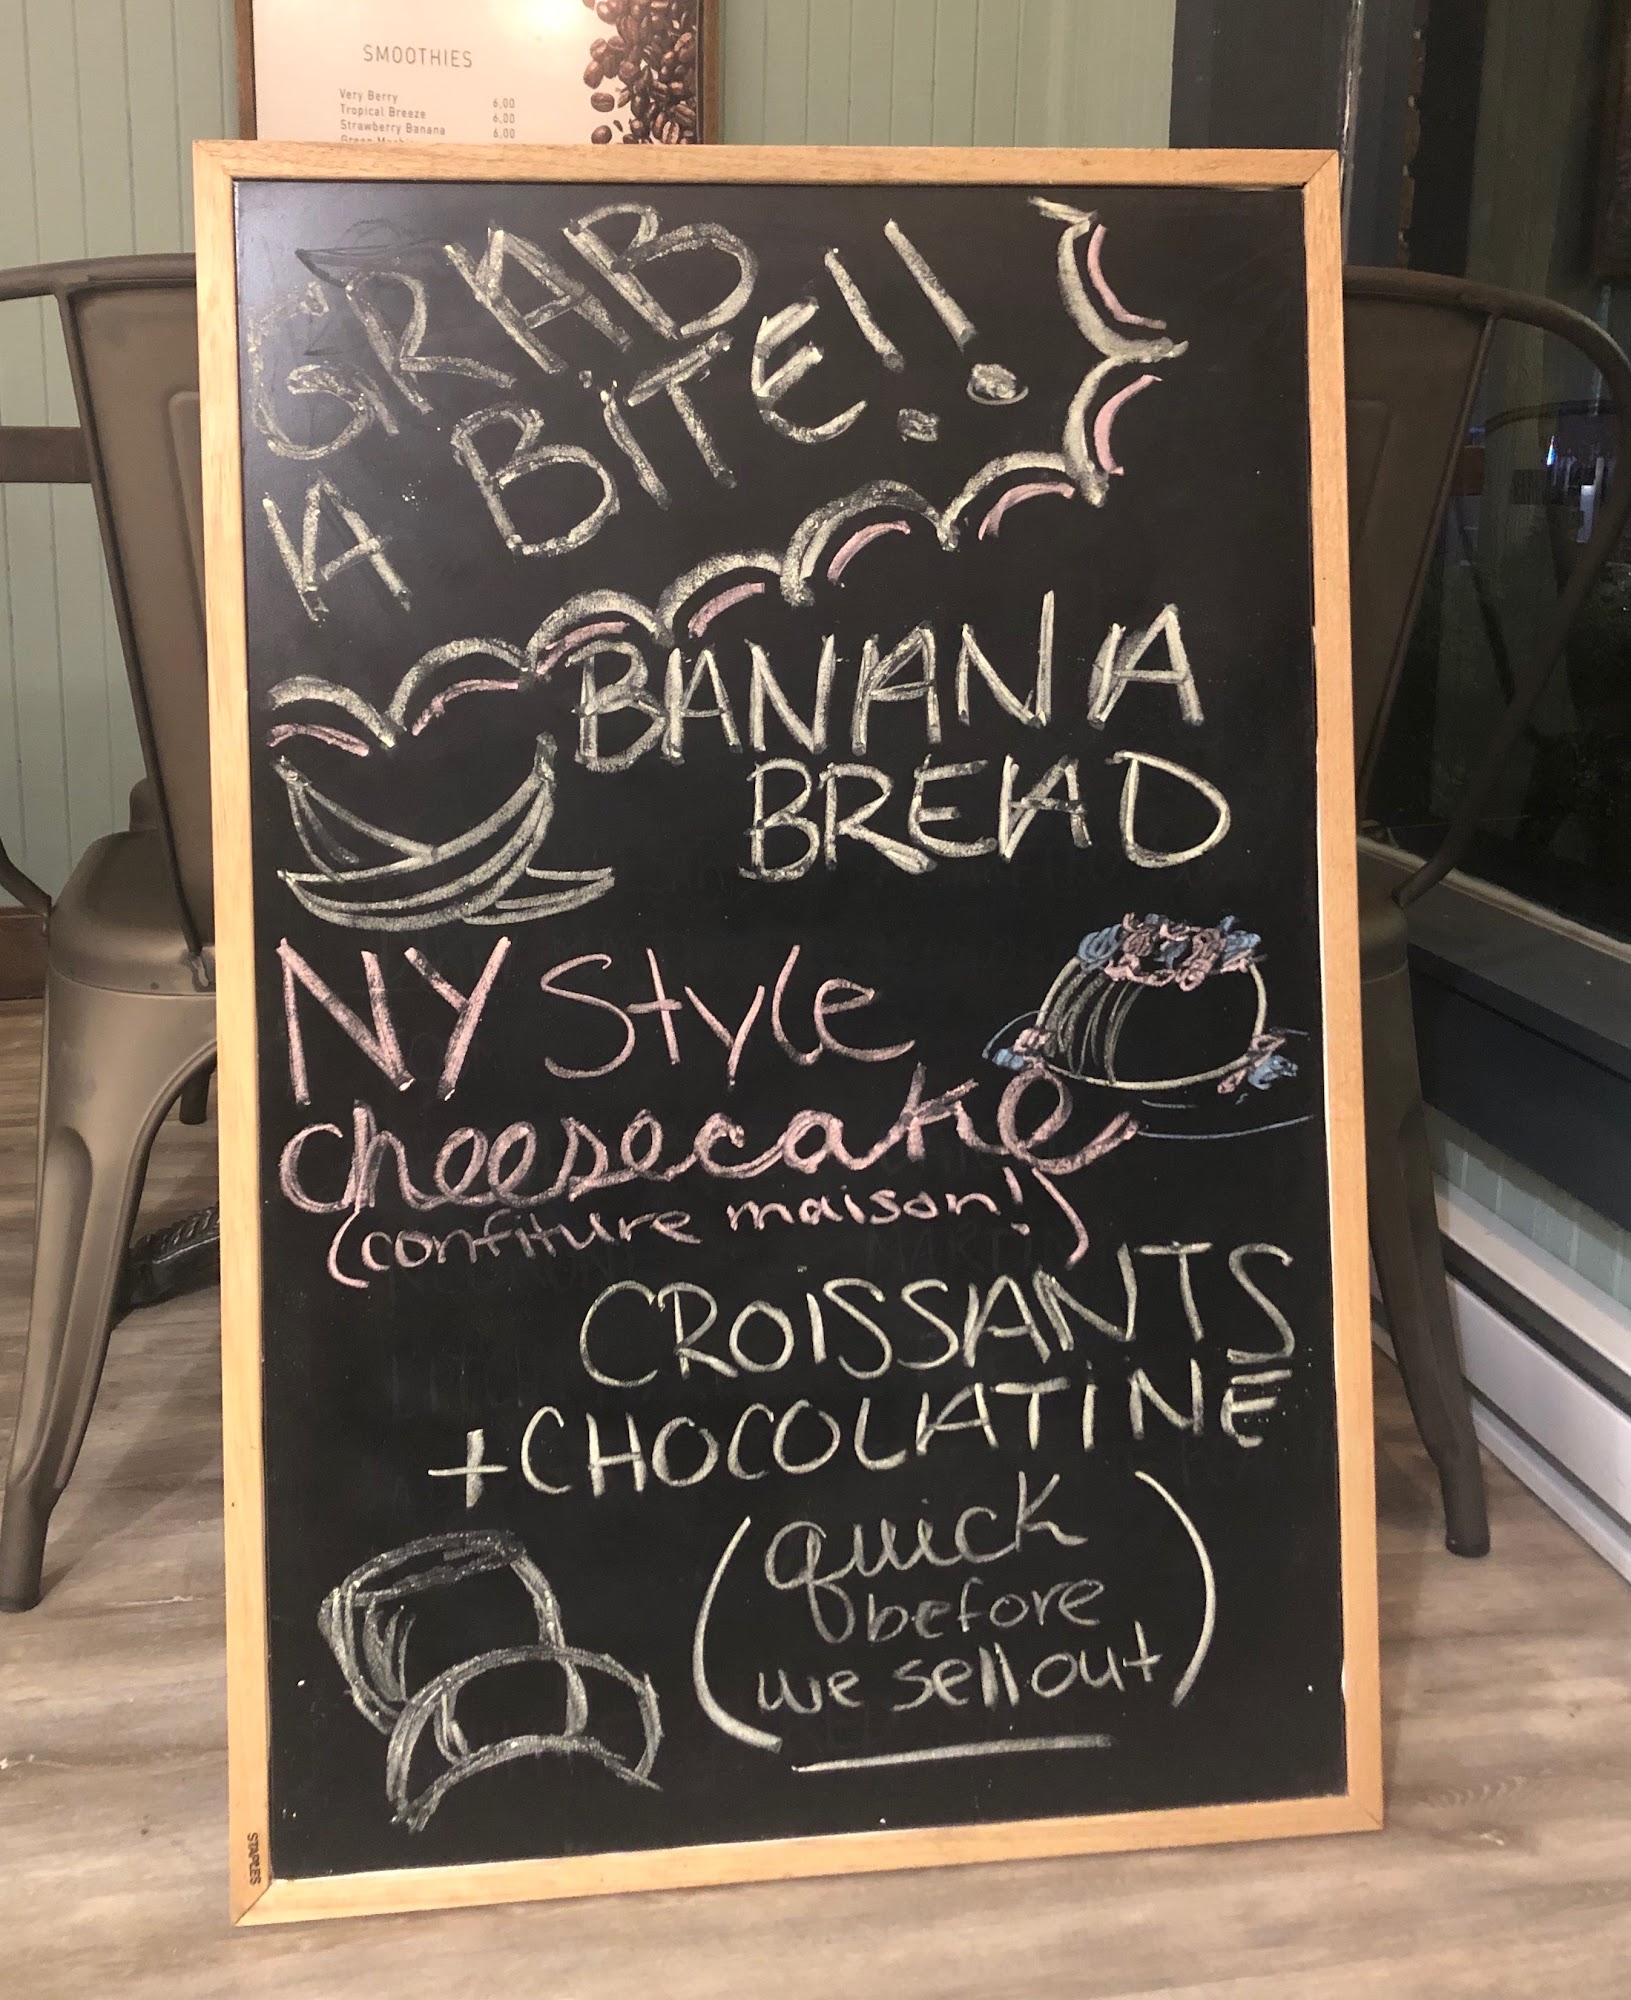 SMOOTHIES
Very Berry 6,00
Tropical Breeze 6,00
Strawberry Banana 6,00
GRAB
A BITE!!
BANANA
BREAD
NY Style
cheesecake
(confiture maison!)
CROISSANTS
+CHOCOLATINE
(quick
before
we sell out)
STAPLES